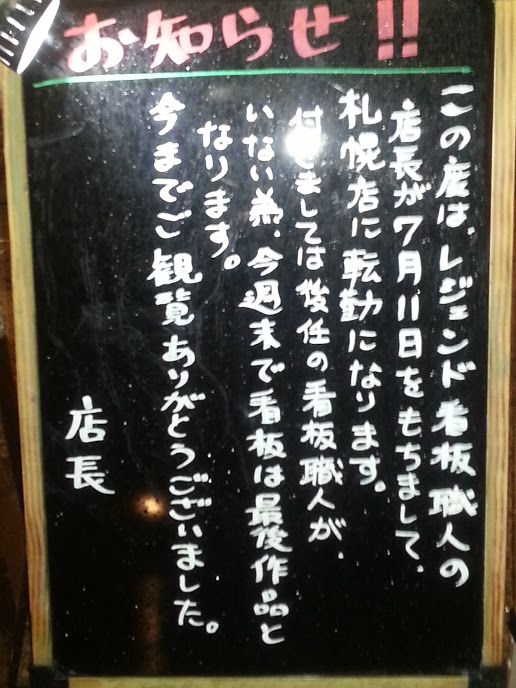 お知らせ!!
この度は、レジェンド看板職人の
店長が7月11日をもちまして、
札幌店に転勤になります。
付きましては後任の看板職人が、
いない為、今週末で看板は最後作品と
なります。
今までご観覧ありがとうございました。
店長